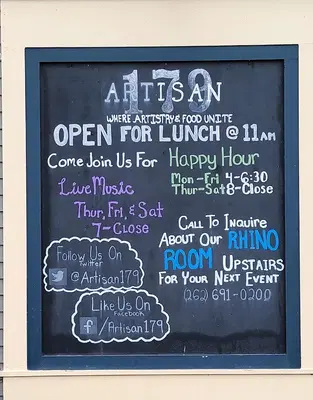 ARTISAN 179
WHERE ARTISTRY & FOOD UNITE
OPEN FOR LUNCH @ 11AM
Come Join Us For Happy Hour
Mon-Fri 4-6:30
Thur-Sat 8-Close
Live Music
Thur, Fri, & Sat
7-Close
Call To Inquire
About Our RHINO
ROOM Upstairs
For Your Next Event
(262) 691-0200
Follow Us On
Twitter
@Artisan179
Like Us On
Facebook
f/Artisan179